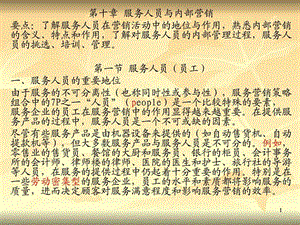 第十章 服务人员与内部营销
要点：了解服务人员在营销活动中的地位与作用，熟悉内部营销
的含义、特点和作用，了解对服务人员的内部管理过程，服务人
员的挑选、培训、管理。
第一节 服务人员（员工）
一、服务人员的重要地位
由于服务的不可分离性（也称同时性或参与性），服务营销策略
组合中的7P之一“人员”（people）是一个比较特殊的要素。
服务企业的员工在服务营销中的作用显得越来越重要。在提供服
务产品的过程中，服务人员是一个不可或缺的因素。
尽管有些服务产品是由机器设备来提供的（如自动售货机、自动
提款机等），但大多数服务产品与服务人员是不可分的。例如，
零售业的售货员、餐馆的大厨和服务员、银行的柜员、会计事务
所的会计师、律师楼的律师、医院的医生和护士、旅行社的导游
等人员，在服务的提供过程中仍起着十分重要的作用。特别是在
一些劳动密集型的服务企业，员工的水平和素质都将影响服务的
质量，进而决定顾客对服务满意程度和影响服务营销的效率。
1